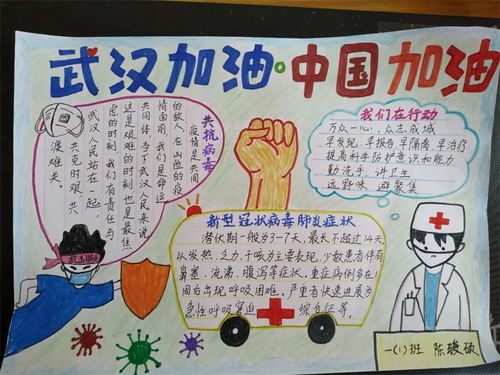 武汉加油·中国加油
共抗病毒
疫情是共同
的敌人,在凶险的疫
情面前,我们是命运
共同体,当下武汉人民来说
这是艰难的时刻也是最焦
虑的时刻,我们有责任与
武汉人民站在一起,
共克时艰,共
渡难关。
我们在行动
万众一心,众志成城
早发现,早报告,早隔离,早治疗
提高科学防护意识和能力
勤洗手 讲卫生
远野味 避聚集
新型冠状病毒肺炎症状
潜伏期一般为3-7天,最长不超过14天
以发热、乏力、干咳为主要表现,少数患者伴有
鼻塞、流涕、腹泻等症状,重症病例多在1
周后出现呼吸困难,严重者快速进展为
急性呼吸窘迫 综合征等。
一(1)班 陈骏硕